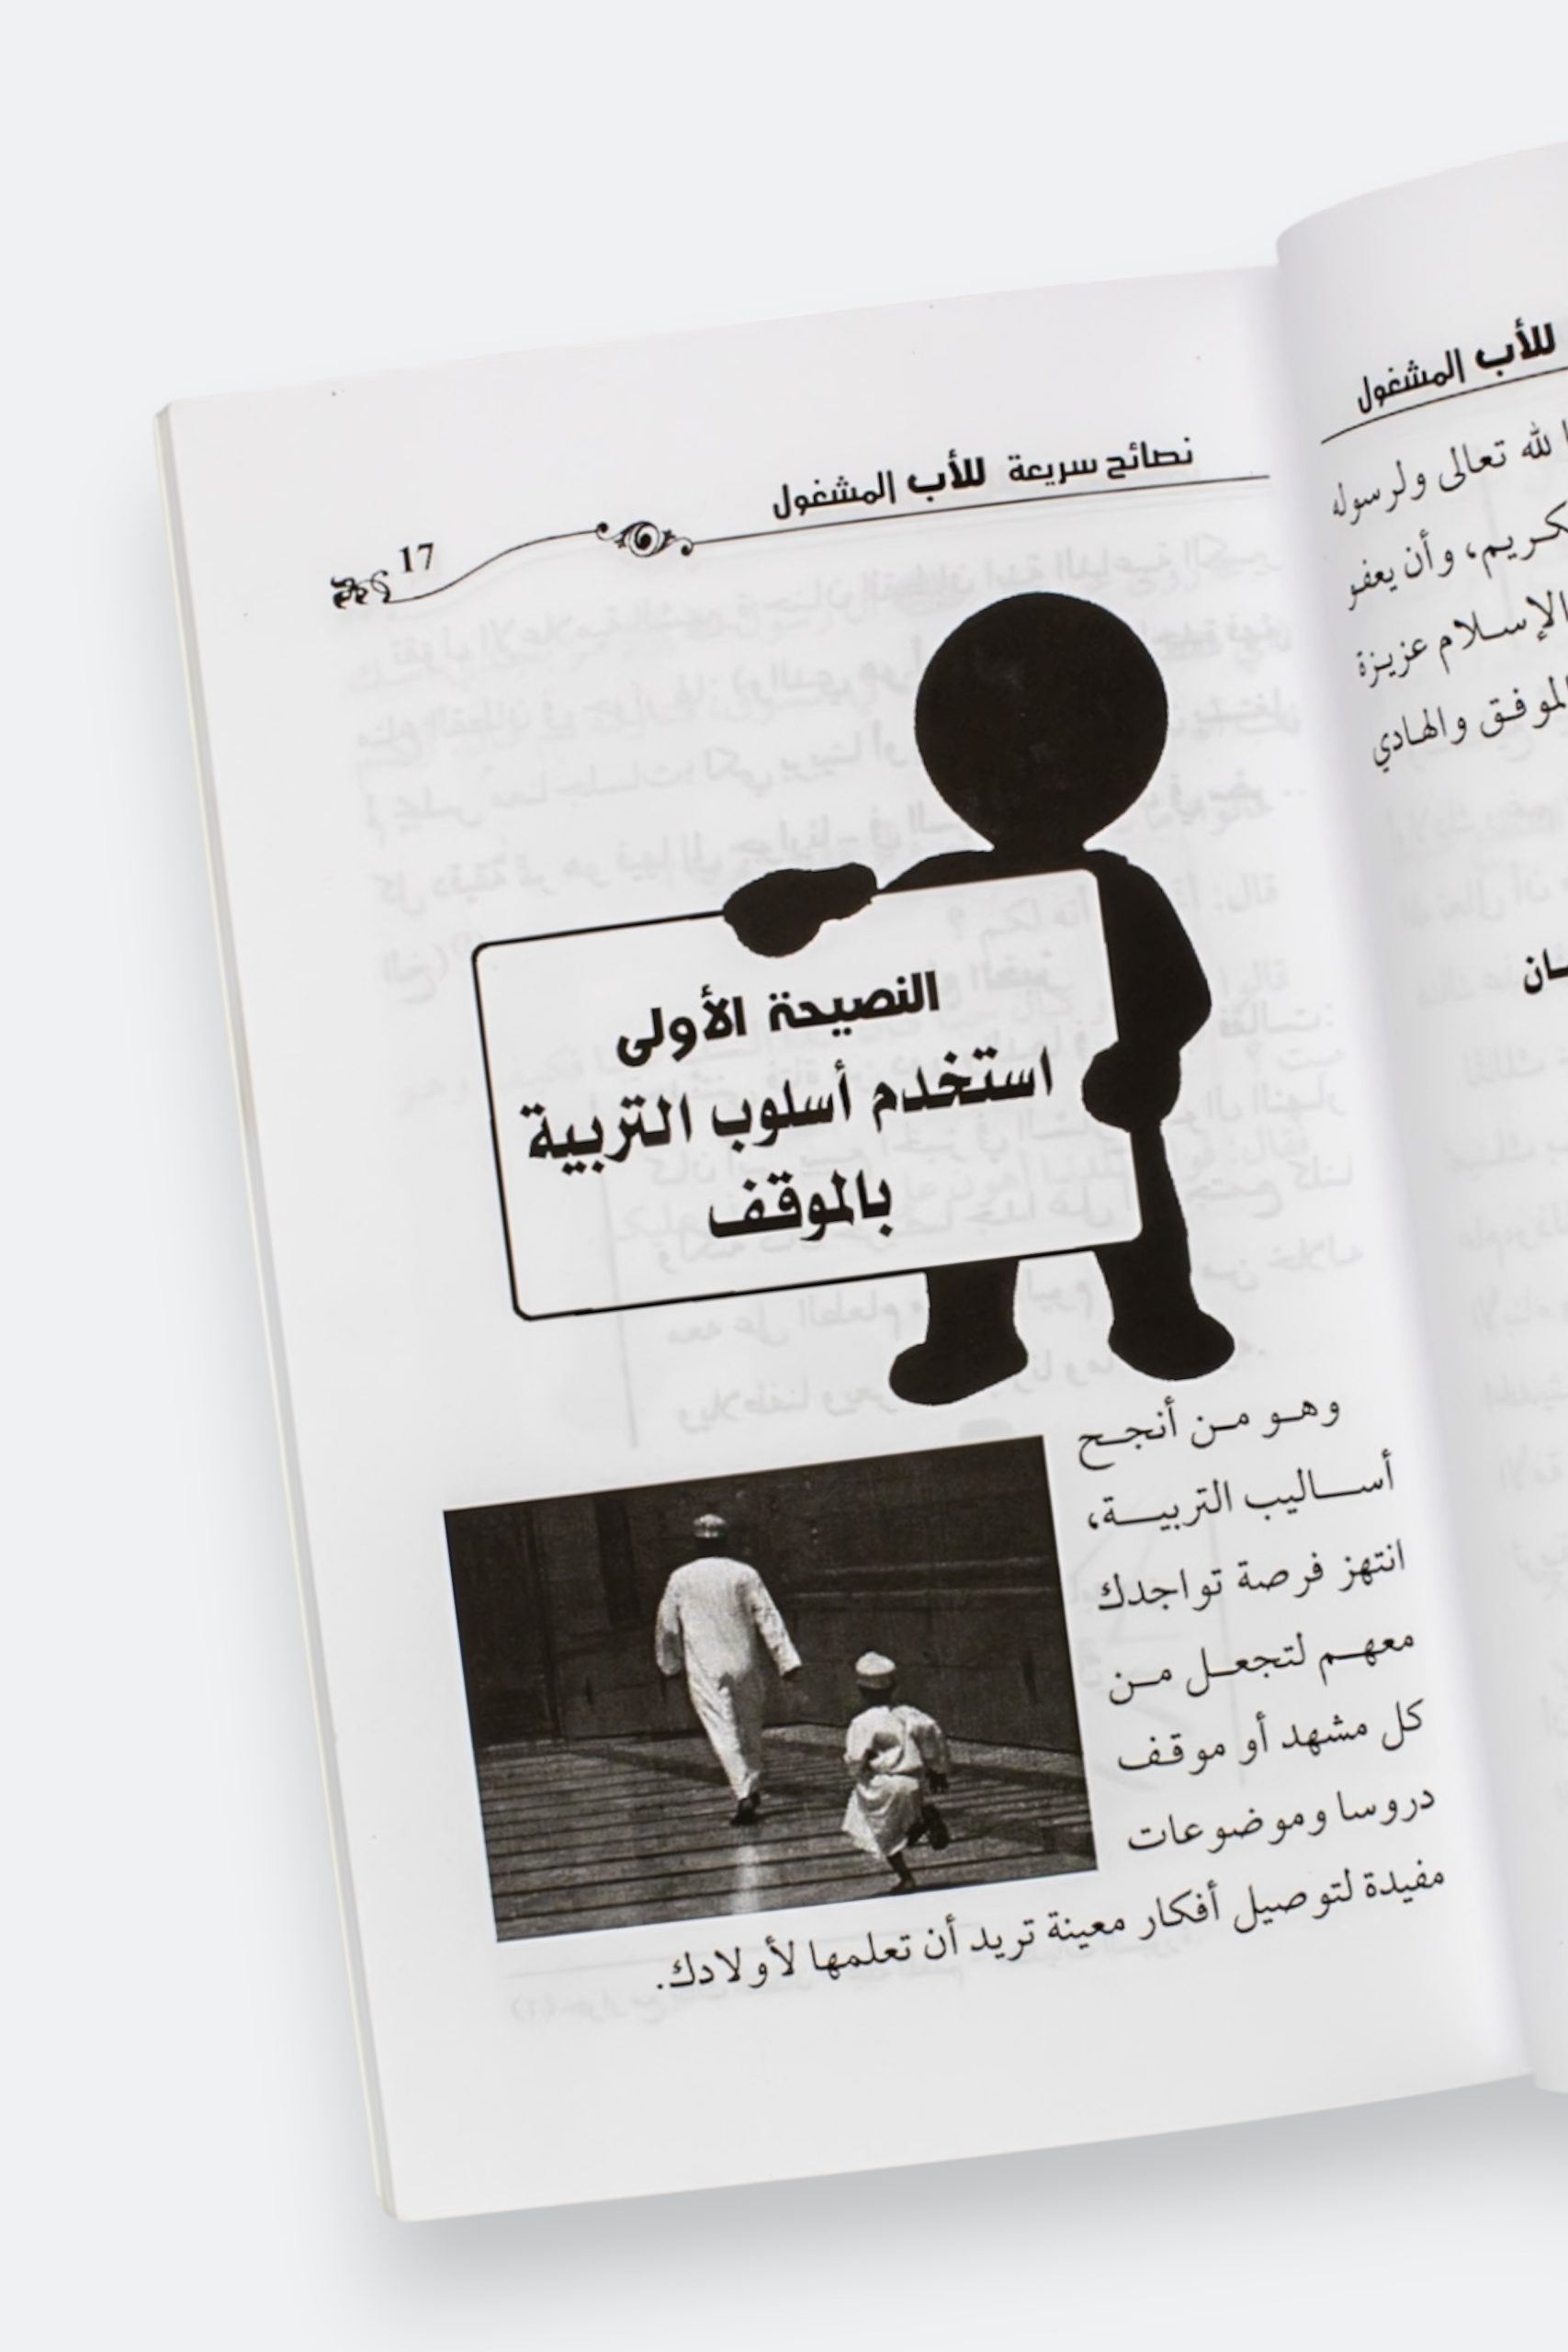 نصائح سريعة للأب المشغول
17
النصيحة الأولى
استخدم أسلوب التربية
بالموقف
وهو من أنجح
أساليب التربية،
انتهز فرصة تواجدك
معهم لتجعل من
كل مشهد أو موقف
دروسا وموضوعات
مفيدة لتوصيل أفكار معينة تريد أن تعلمها لأولادك.
للأب المشغول
لله تعالى ولرسوله
وأن يعفو
الإسلام عزيزة
والهادي